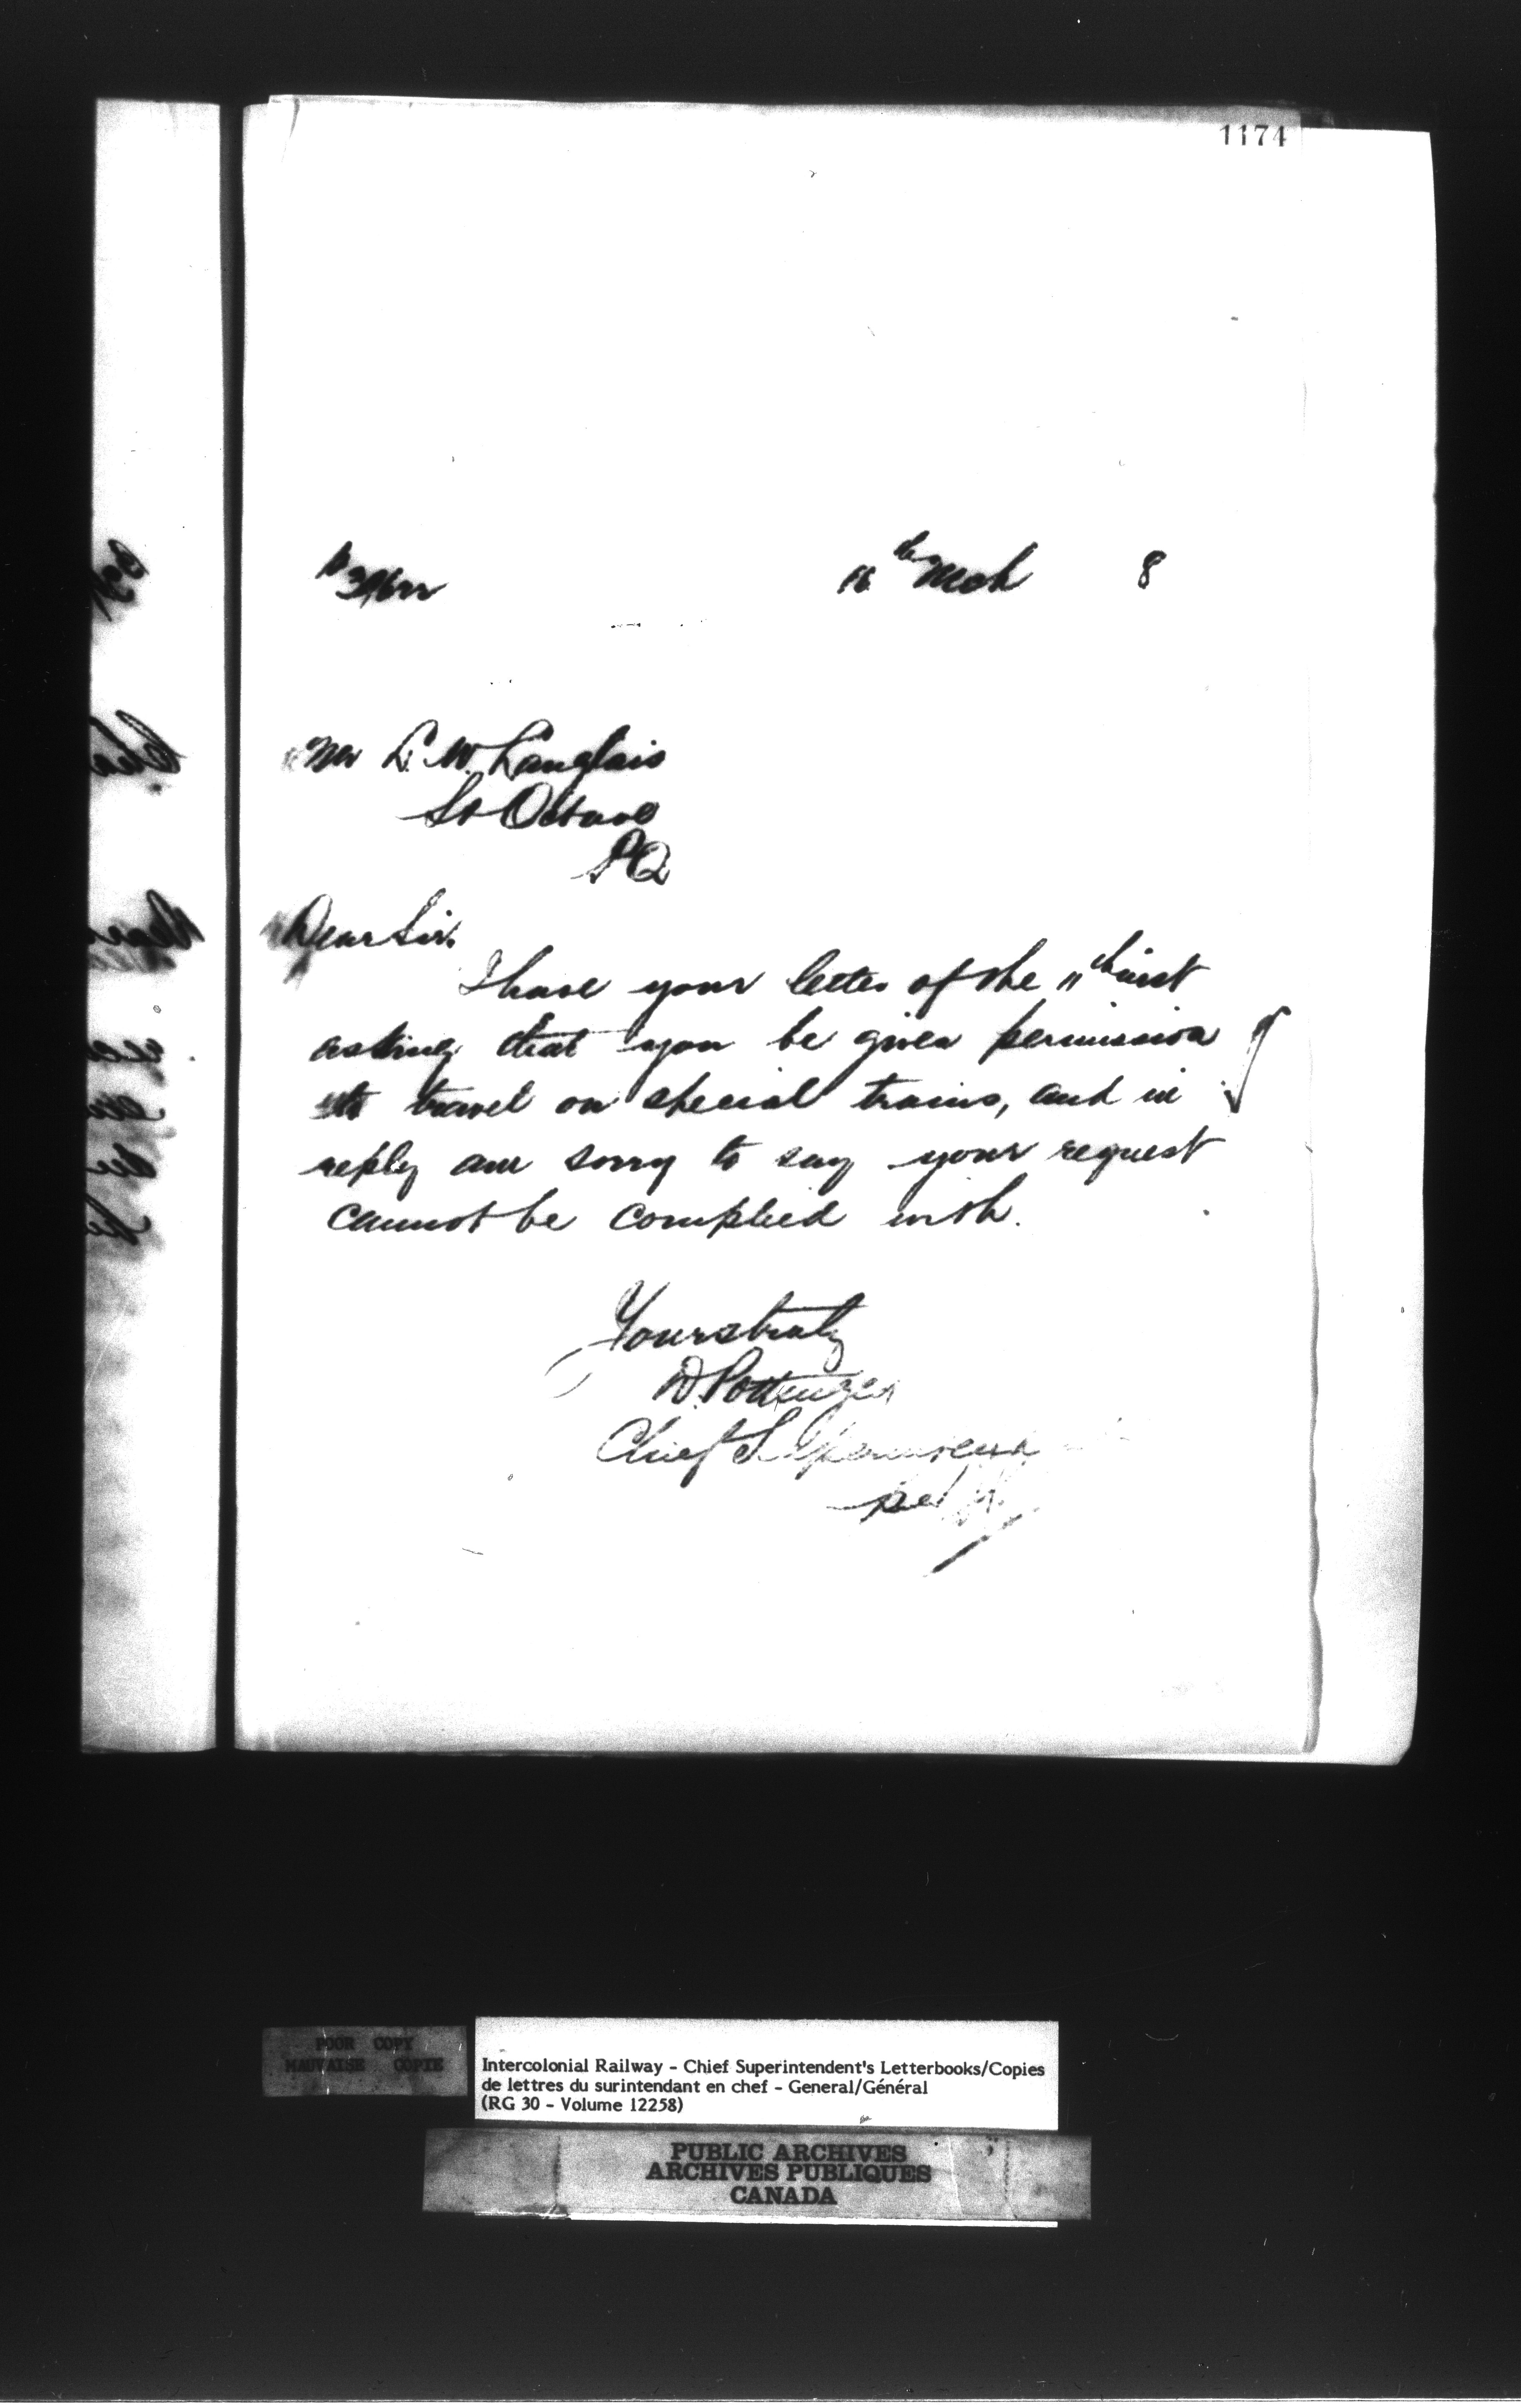 1174
Mch 8
Mr L. W. Langlais
St Octave
PQ
Dear Sir.
I have your letter of the 11th inst
asking that you be given permission
to travel on special trains, and in
reply am sorry to say your request
cannot be complied with.
Yours truly
D. Pottinger
Chief Superintendent
per
POOR COPY
MAUVAISE COPIE
Intercolonial Railway - Chief Superintendent's Letterbooks/Copies
de lettres du surintendant en chef - General/Général
(RG 30 - Volume 12258)
PUBLIC ARCHIVES
ARCHIVES PUBLIQUES
CANADA